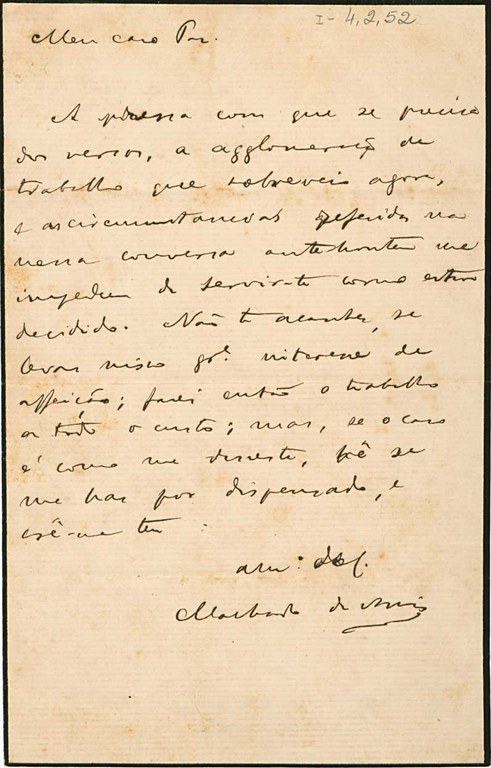 I-4,2,52
Meu caro Paz.
A pressa com que se precisa
dos versos, a agglomeração de
trabalho que sobreveio agora,
e as circumstancias referidas na
nossa conversa antehontem me
impedem de servir-te como estava
decidido. Não te acanhes, se
levas nisso gr.de interesse de
affeição; farei então o trabalho
a todo o custo; mas, se o caso
é como me disseste, vê se
me has por dispensado, e
crê-me teu
am.o
Machado de Assis